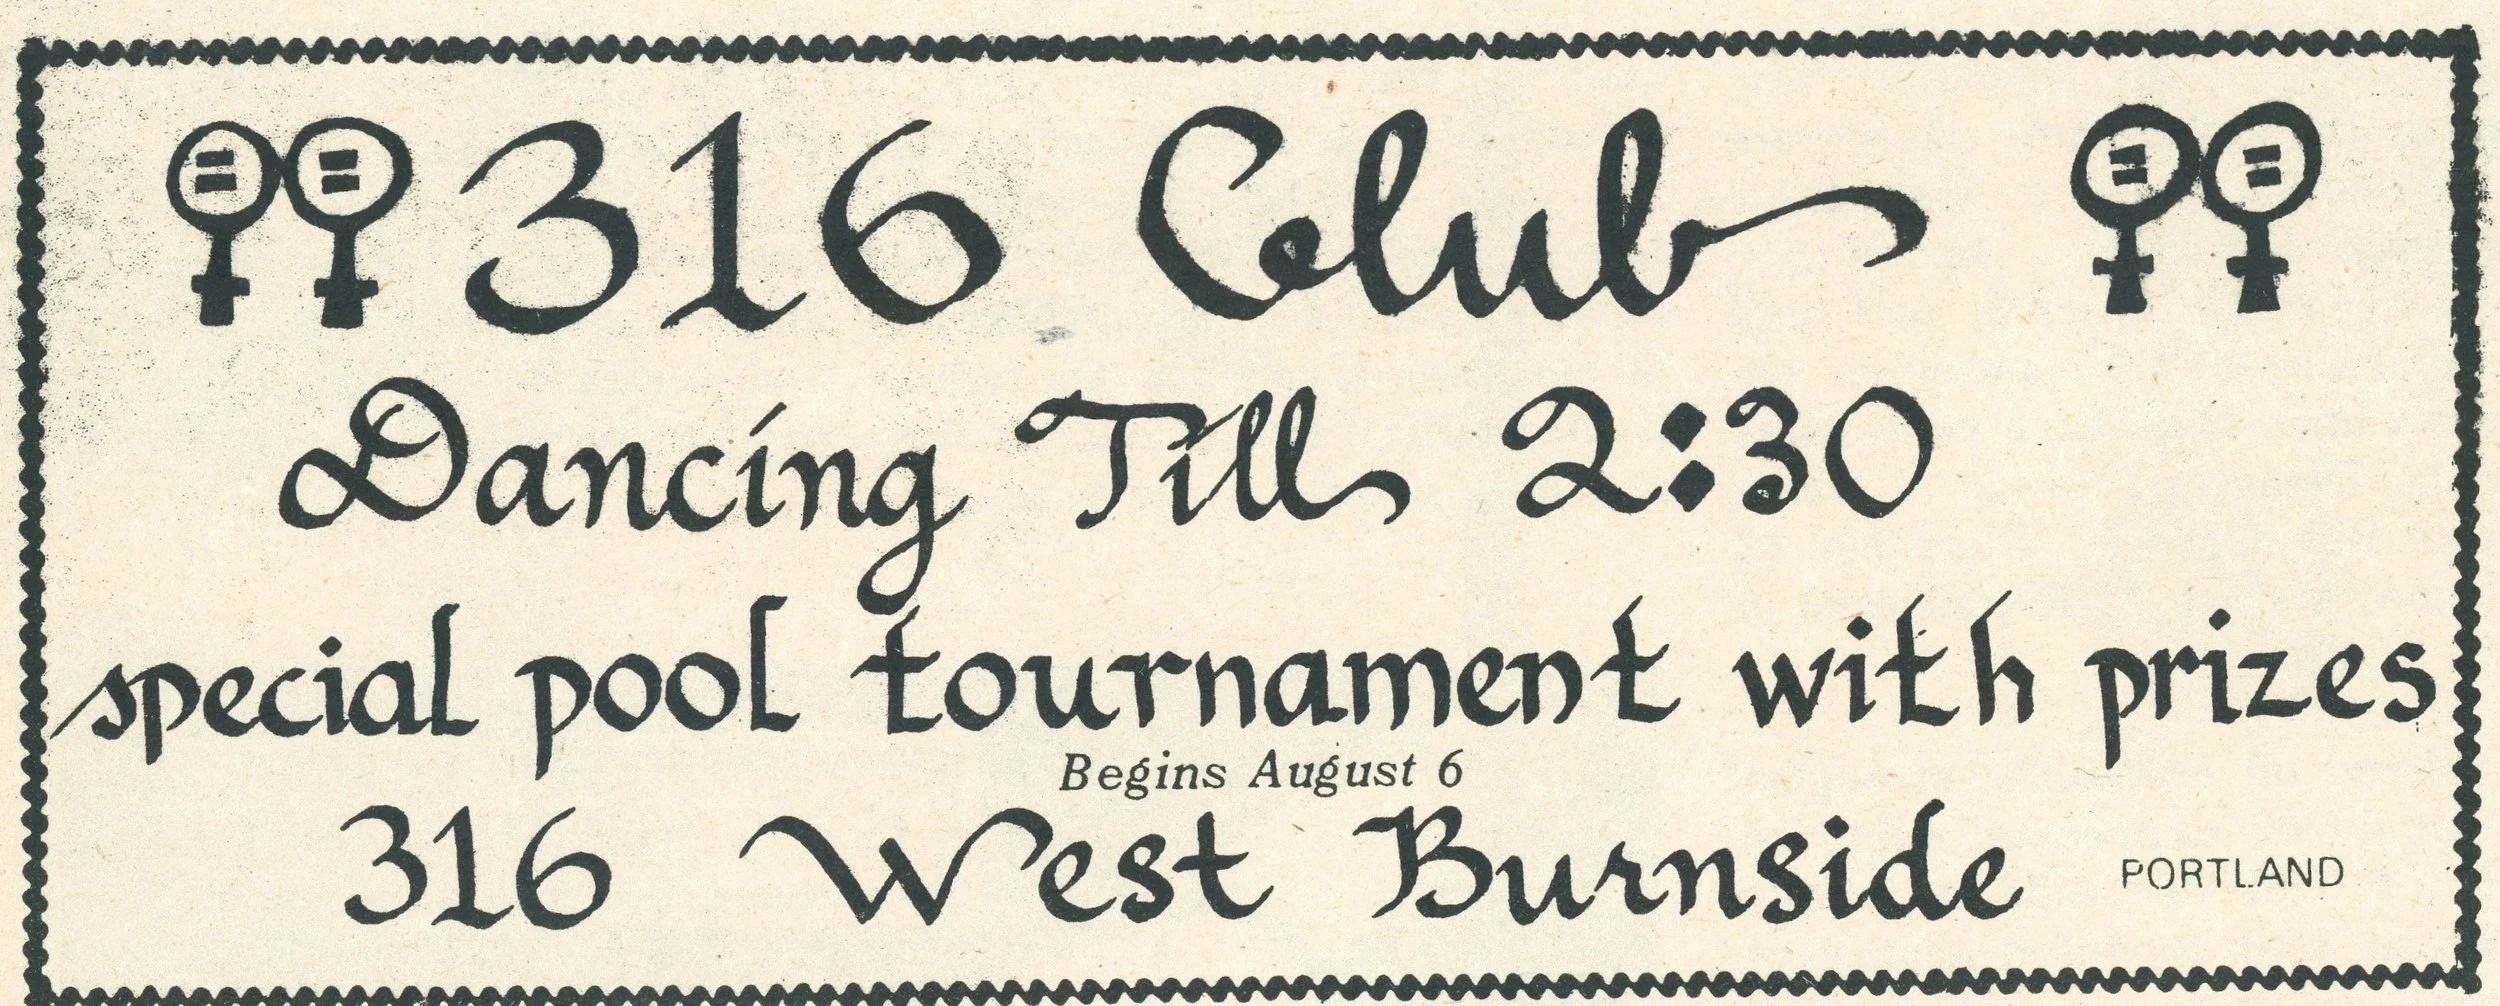 316 Club
Dancing Till 2:30
special pool tournament with prizes
Begins August 6
316 West Burnside PORTLAND